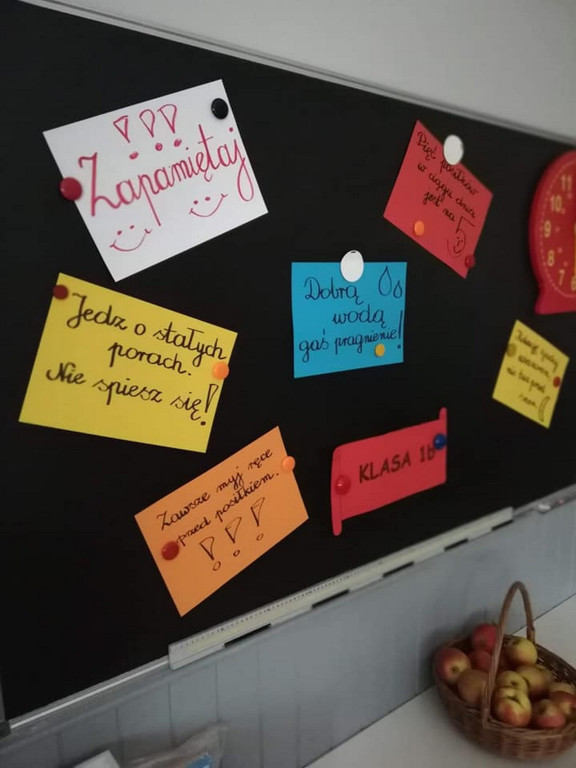 !!!
Zapamiętaj
Pięć posiłków
w ciągu dnia
jest na 5
Dobrą
wodą
gaś pragnienie!
Jedz o stałych
porach.
Nie spiesz się!
Zawsze myj ręce
przed posiłkiem.
!!!
KLASA 1b
11
10
9
8
7